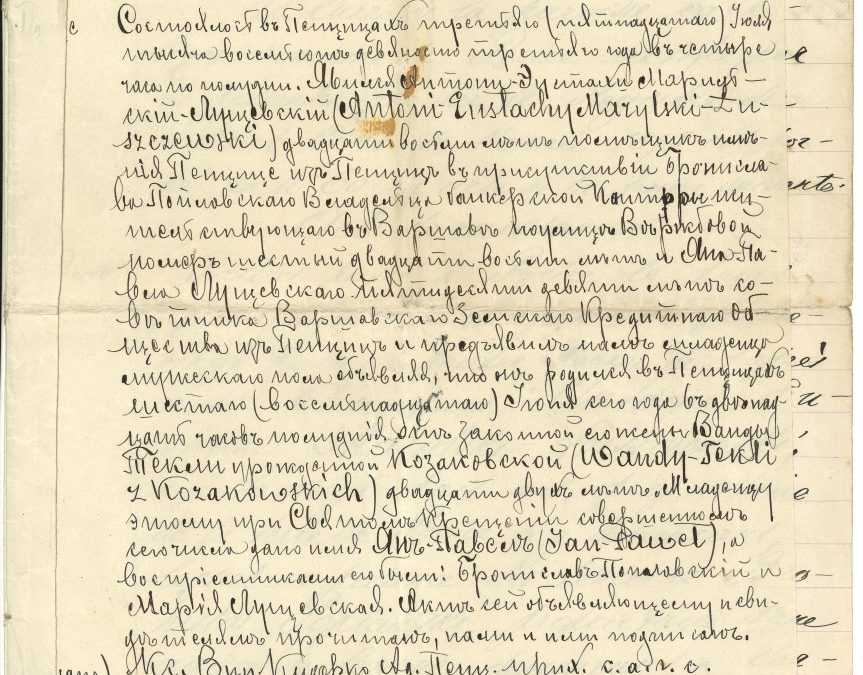 с Состоялось въ Пещицахъ третьяго (пятнадцатаго) Іюля
тысяча восемьсотъ девяносто третьяго года въ четыре
часа по полудни. Явился Антонъ-Эустахій Марыль-
скій-Лущевскій (Antoni Eustachy Marylski-Łu-
szczewski) двадцати восьми лѣтъ помѣщикъ имѣ-
нія Пещице изъ Пещицъ въ присутствіи Бронисла-
ва Владельца банкерской Конторы жи-
тельствующаго въ Варшавѣ по улицѣ
номеръ шестый двадцати восьми лѣтъ и Яна-Па-
вла Лущевскаго пятидесяти девяти лѣтъ со-
вѣтника Варшавскаго Земскаго Кредитнаго Об-
щества изъ Пещицъ и предъявилъ намъ младенца
мужескаго пола объявляя, что онъ родился въ Пещицахъ
шестаго (восемнадцатаго) Іюня сего года въ двѣнад-
цать часовъ полудня отъ законной его жены Ванды
Текли урожденной Козаковской (Wandy-Tekli
z Kozakowskich) двадцати двухъ лѣтъ. Младенцу
этому при Святомъ Крещеніи совершенномъ
сего числа дано имя Янъ-Павелъ (Jan-Paweł), а
воспріемниками его были: Брониславъ и
Марія Лущевская. Актъ сей объявляющему и сви-
дѣтелямъ прочитанъ, нами и ими подписанъ.
Кс. Ад. Пещ. прих. с. а. г. с.